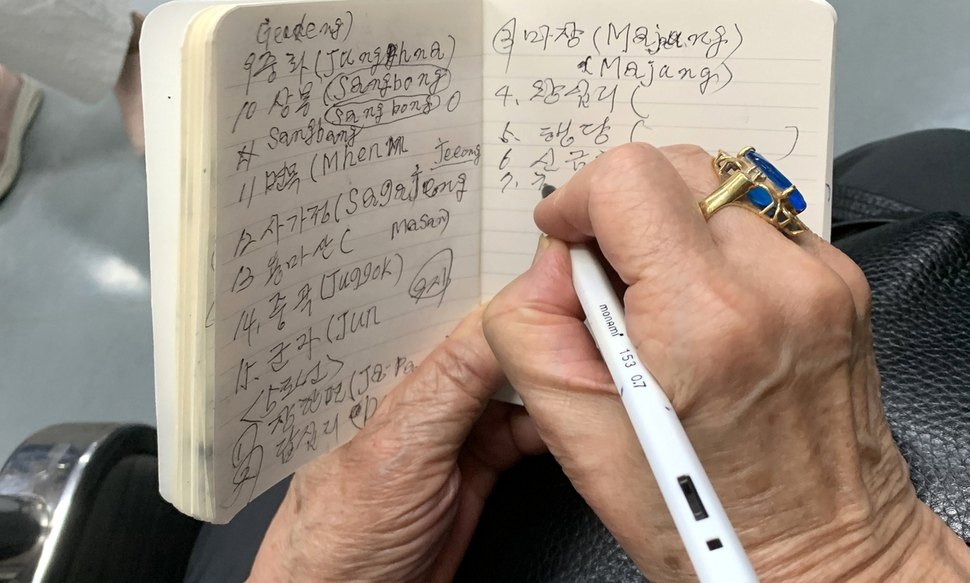 9 중화 (Junghna)
10 상봉 (Sangbong
(Sangbong) 0
Sangbang
11) 면목 (Mhenm
Jeeong
12. 사가정 (Sagajeong
13 용마산 ( Masan)
14. 중곡 (Juggok)
15. 군자 (Jun
<5호선>
장한편 (Ja-Pa
답십리 (D
마장 (Majang)
(Majang)
4. 왕십리 (
5. 행당 ( )
6 신금
7.
monami 153 0.7